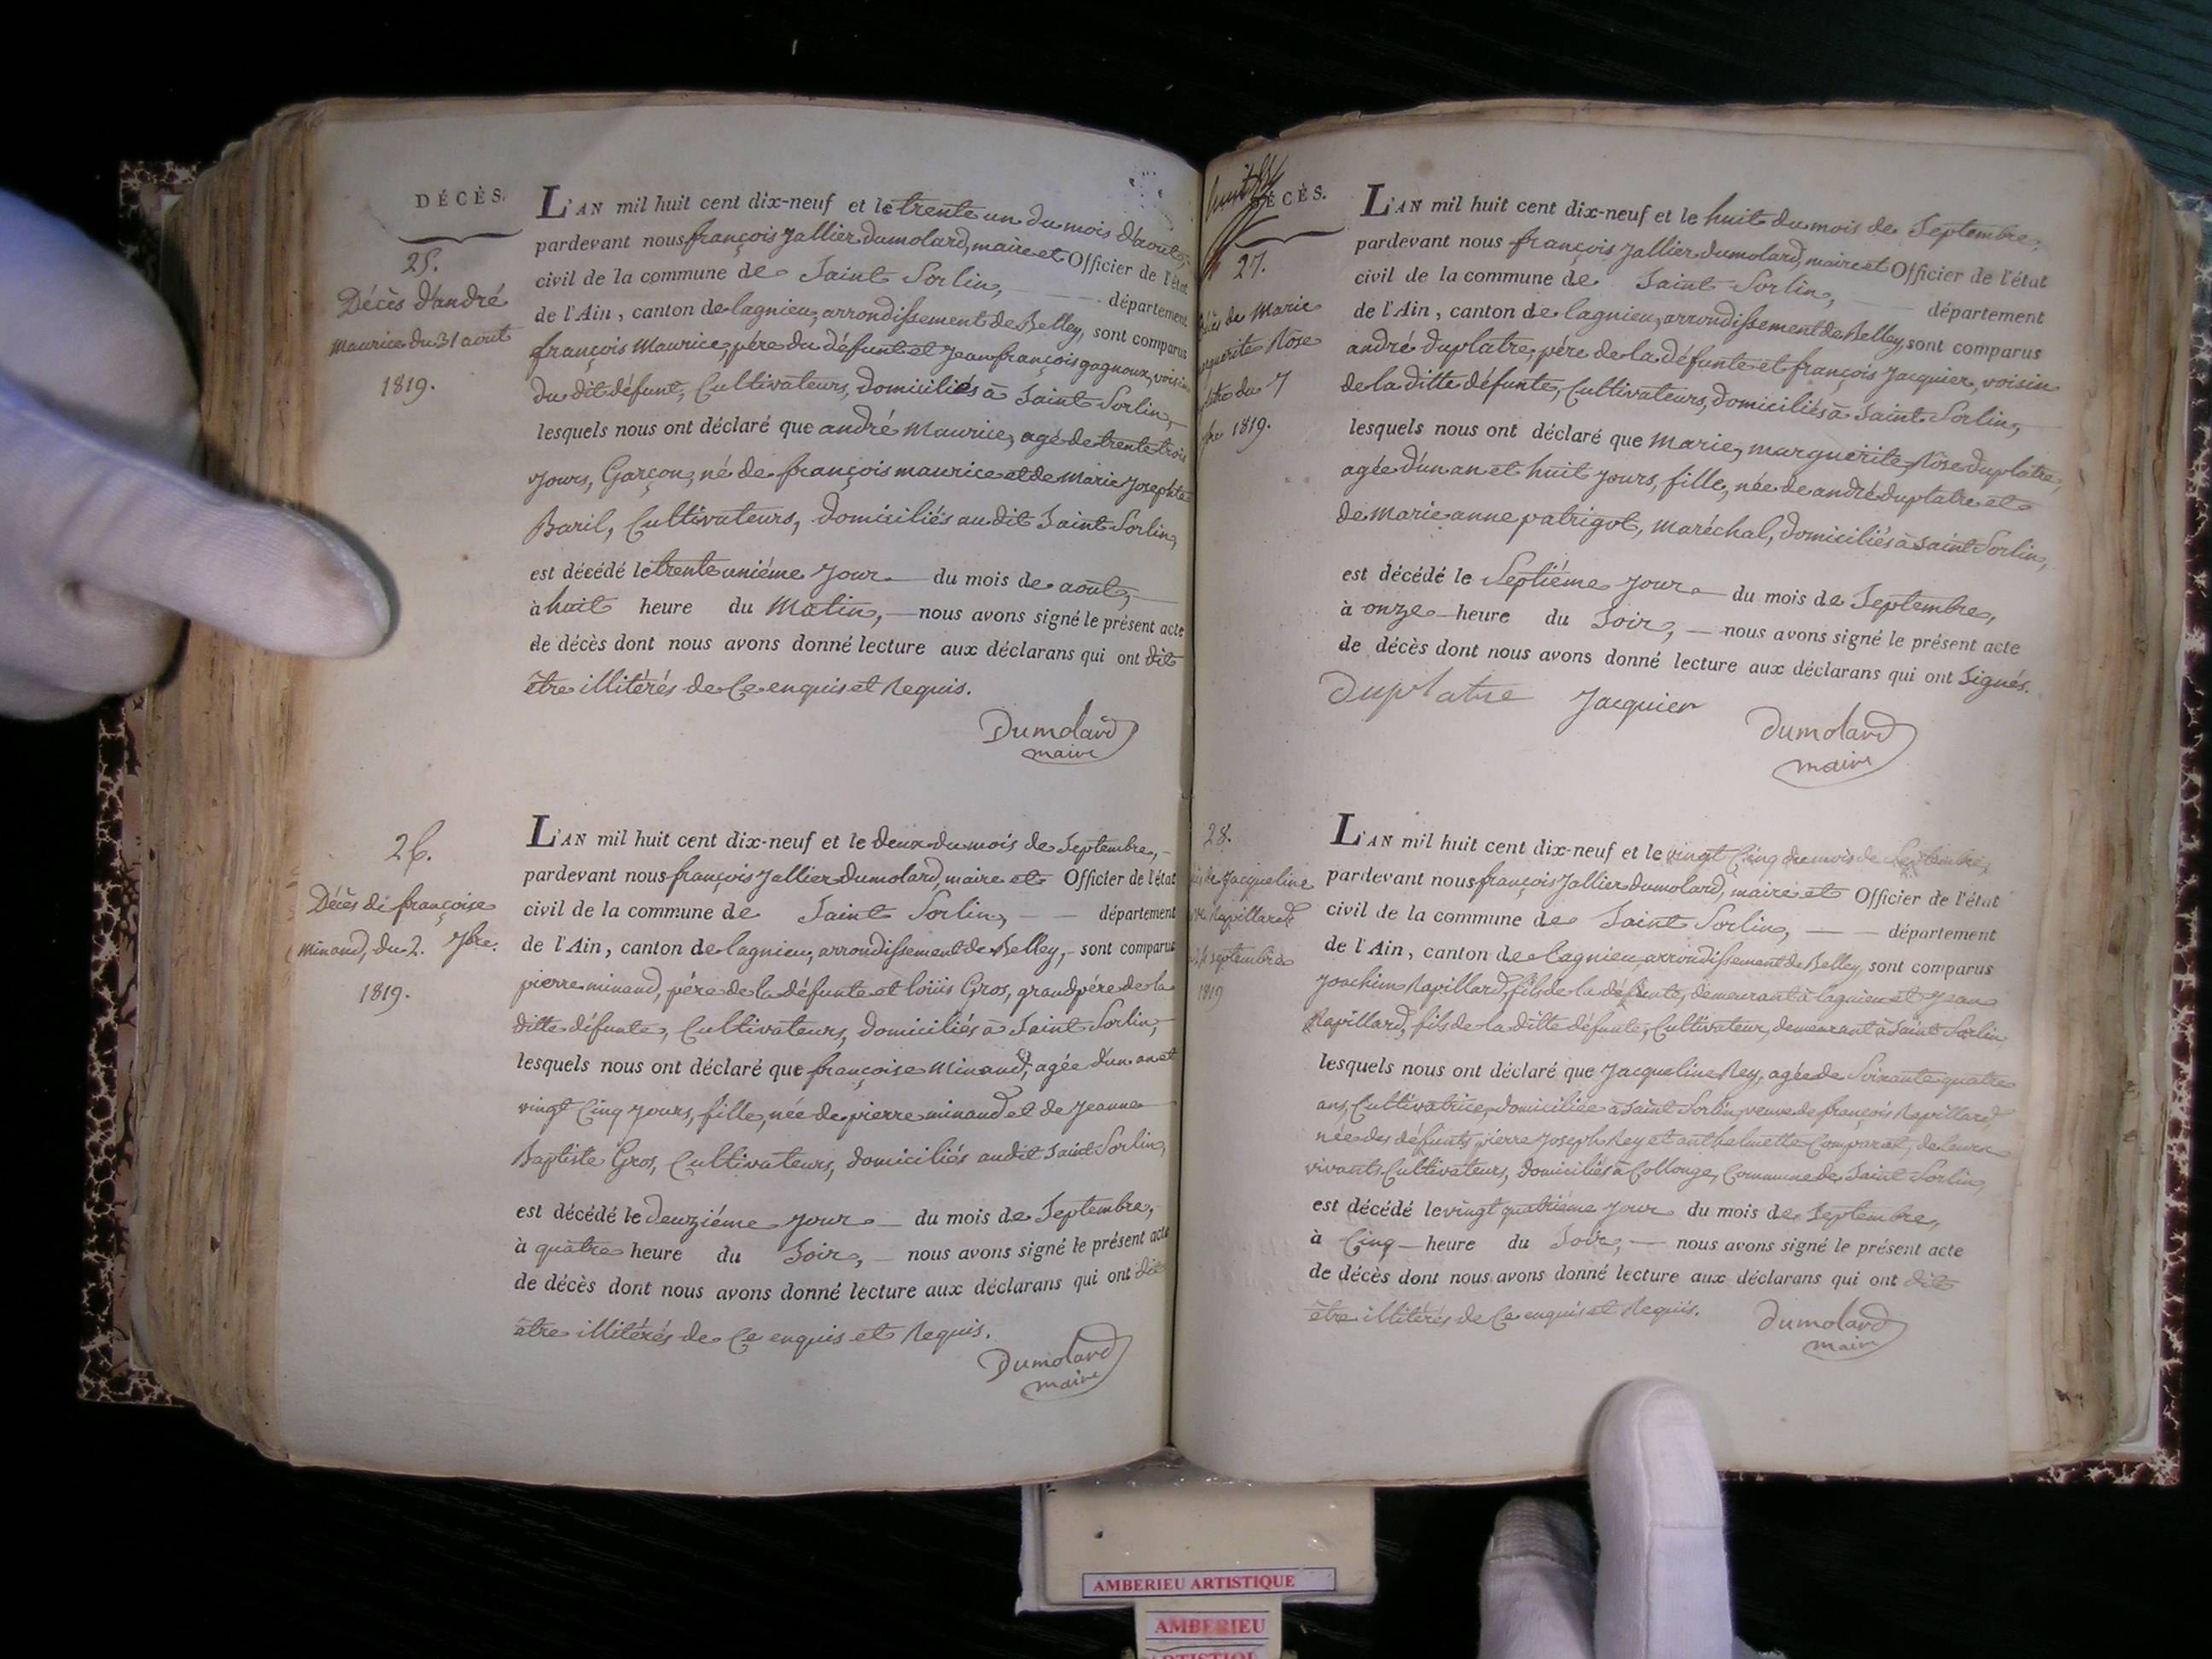 DÉCÈS.
25.
Décès d'andré
maurice du 31 aout
1819.
L'AN mil huit cent dix-neuf et le trente un du mois d'aout,
pardevant nous françois Jallier dumolard, maire et Officier de l'état
civil de la commune de Saint Sorlin, département
de l'Ain, canton de lagnieu, arrondissement de Belley, sont comparus
françois Maurice, pére du défunt et Jean françois gagnoux, voisin
du dit défunt, Cultivateurs, domiciliés à Saint Sorlin,
lesquels nous ont déclaré que andré Maurice, agé de trente trois
Jours, Garçon, né de françois maurice et de Marie Josephte
Baril, Cultivateurs, domiciliés au dit Saint Sorlin,
est décédé le trente uniéme Jour du mois de aout,
à huit heure du Matin, nous avons signé le présent acte
de décès dont nous avons donné lecture aux déclarans qui ont dit
être illitérés de Ce enquis et Requis.
Dumolard
maire
26.
Décès de françoise
minand, du 2. 7bre.
1819.
L'AN mil huit cent dix-neuf et le deux du mois de Septembre,
pardevant nous françois Jallier dumolard, maire et Officier de l'état
civil de la commune de Saint Sorlin, département
de l'Ain, canton de lagnieu, arrondissement de Belley, sont comparus
pierre minand, pére de la défunte et loüis Gros, grand pére de la
ditte défunte, Cultivateurs, domiciliés à Saint Sorlin,
lesquels nous ont déclaré que françoise Minand, agée d'un an et
vingt Cinq Jours, fille, née de pierre minand et de Jeanne
Baptiste Gros, Cultivateurs, domiciliés audit Saint Sorlin,
est décédé le deuziéme Jour du mois de Septembre,
à quatre heure du Soir, nous avons signé le présent acte
de décès dont nous avons donné lecture aux déclarans qui ont dit
être illitérés de Ce enquis et Requis.
Dumolard
maire
huit
DÉCÈS.
27.
Décès de Marie
Rose
du 7
1819.
L'AN mil huit cent dix-neuf et le huit du mois de Septembre,
pardevant nous françois Jallier dumolard, maire et Officier de l'état
civil de la commune de Saint Sorlin, département
de l'Ain, canton de lagnieu, arrondissement de Belley, sont comparus
andré duplatre, pére de la défunte et françois Jacquier, voisin
de la ditte défunte, Cultivateurs, domiciliés à Saint Sorlin,
lesquels nous ont déclaré que Marie, marguerite Rose duplatre,
agée d'un an et huit Jours, fille, née de andré duplatre et
de Marie anne patrigot, Maréchal, domiciliés à Saint Sorlin,
est décédé le Septiéme Jour du mois de Septembre,
à onze heure du Soir, nous avons signé le présent acte
de décès dont nous avons donné lecture aux déclarans qui ont Signés.
Duplatre Jacquier
dumolard
maire
28.
de Jacqueline
Rapillard
24 septembre
1819
L'AN mil huit cent dix-neuf et le vingt Cinq du mois de Septembre,
pardevant nous françois Jallier dumolard, maire et Officier de l'état
civil de la commune de Saint Sorlin, département
de l'Ain, canton de Lagnieu, arrondissement de Belley, sont comparus
Joachim Rapillard, fils de la défunte, demeurant à lagnieu et Jean
Rapillard, fils de la ditte défunte, Cultivateur, demeurant à Saint Sorlin
lesquels nous ont déclaré que Jacqueline Rey, agée de Soixante quatre
ans, Cultivatrice, domiciliée à Saint Sorlin, veuve de françois Rapillard,
née des défunts pierre Joseph Rey et anthelmette Comparat, de leurs
vivants Cultivateurs, domiciliés à Collonge, Commune de Saint Sorlin,
est décédé le vingt quatriéme Jour du mois de Septembre,
à Cinq heure du Soir, nous avons signé le présent acte
de décès dont nous avons donné lecture aux déclarans qui ont dit
être illitérés de Ce enquis et Requis.
dumolard
maire
AMBERIEU ARTISTIQUE
AMBERIEU
ARTISTIQUE